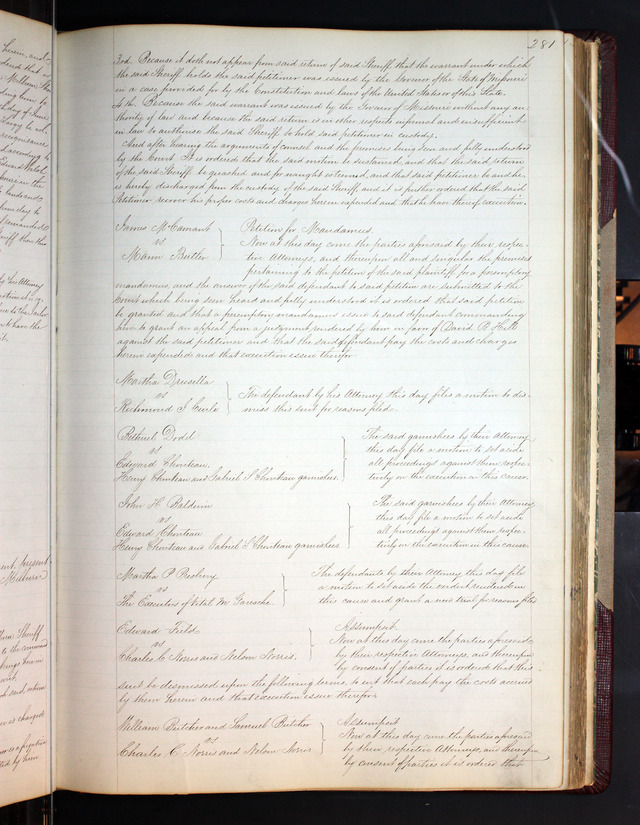 281
3rd. Because it doth not appear from said return of said Sheriff that the warrant under which
the said Sheriff holds the said petitioner was issued by the Governor of the State of Missouri
in a case provided for by the Constitution and laws of the United States or of this State.
4th Because the said warrant was issued by the Governor of Missouri without any au-
thority of law and because the said return is in other respects informal and insufficient
in law to authorise the said Sheriff to hold said petitioner in custody.
And after hearing the arguments of counsel and the premises being seen and fully understood
by the Court It is ordered that the said motion be sustained, and that the said return
of the said Sheriff be quashed and for naught esteemed, and that said petitioner be and he
is hereby discharged from the custody of the said Sheriff and it is further ordered that the said
Petitioner recover his proper costs and charges herein expended and that he have thereof execution.
James McCamant
vs
Mann Butler
Petition for Mandamus.
Now at this day come the parties aforesaid by their respec-
tive Attorneys, and thereupon all and singular the premises
pertaining to the petition of the said plaintiff for a peremptory
mandamus and the answer of the said defendant to said petition are submitted to the
Court which being seen heard and fully understood it is ordered that said petition
be granted and that a peremptory mandamus issue to said defendant commanding
him to grant an appeal from a judgment rendered by him in favor of David B. Hill
against the said petitioner and that the said defendant pay the costs and charges
herein expended and that execution issue therefor.
Martha Drusella
vs
Richmond J Curle
The defendant by his Attorney this day files a motion to dis-
miss this suit for reasons filed.
Bethuel Dodd
vs
Edward Chouteau.
Henry Chouteau and Gabriel S Chouteau garnishees.
The said garnishees by their Attorney
this day file a motion to set aside
all proceedings against them respec-
tively on the execution in this cause.
John H. Baldwin
vs
Edward Chouteau
Henry Chouteau and Gabriel S Chouteau garnishees
The said garnishees by their Attorney
this day file a motion to set aside
all proceedings against them respec-
tively on the execution in this cause.
Martha P
vs
The Executors of Vital M
The defendants by their Attorney this day file
a motion to set aside the verdict rendered in
this cause and grant a new trial for reasons filed
Edward Field
vs
Charles C Norris and Nelson Norris.
Assumpsit
Now at this day come the parties aforesaid
by their respective Attorneys, and thereupon
by consent of parties it is ordered that this
suit be dismissed upon the following terms, to wit that each pay the costs accrued
by them herein and that execution issue therefor.
William Butcher and Samuel Butcher
vs
Charles C. Norris and Nelson Norris
Assumpsit
Now at this day come the parties aforesaid
by their respective Attorneys, and thereupon
by consent of parties it is ordered that